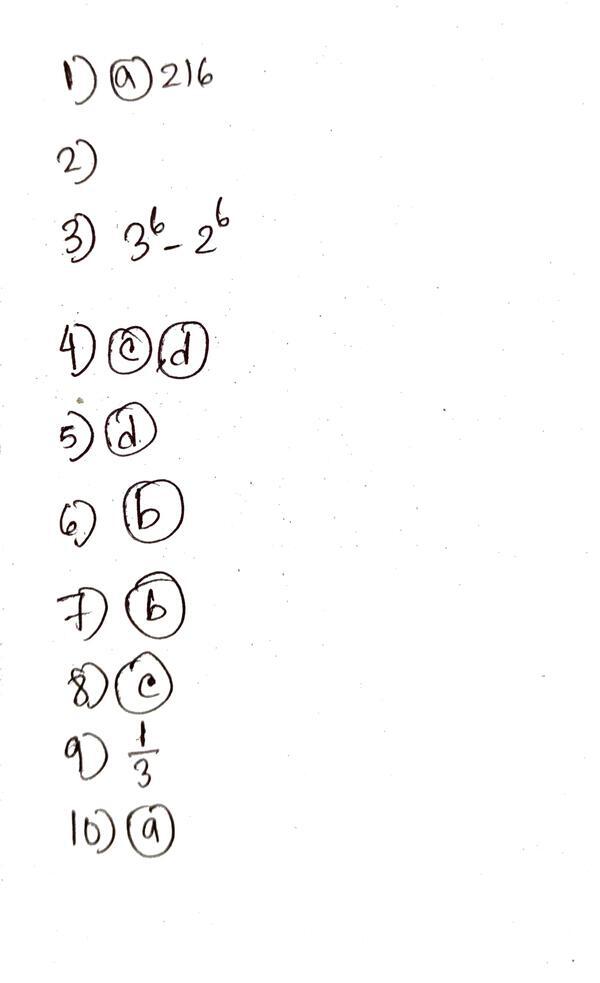 1) ⓐ 216
2)
3) 3⁶ - 2⁶
4) ⓒ ⓓ
5) ⓓ
6) ⓑ
7) ⓑ
8) ⓒ
9) 1/3
10) ⓐ